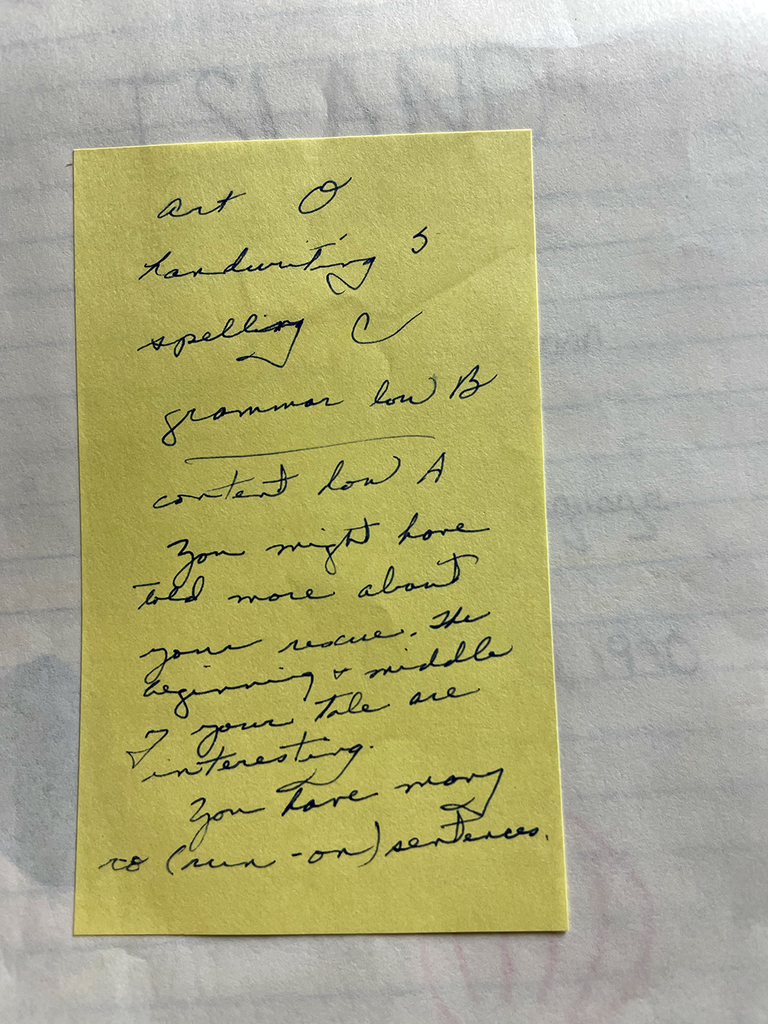 art O
handwriting S
spelling C
grammar low B
content low A
You might have
told more about
your rescue. The
beginning & middle
of your tale are
interesting.
You have many
ro (run-on) sentences.